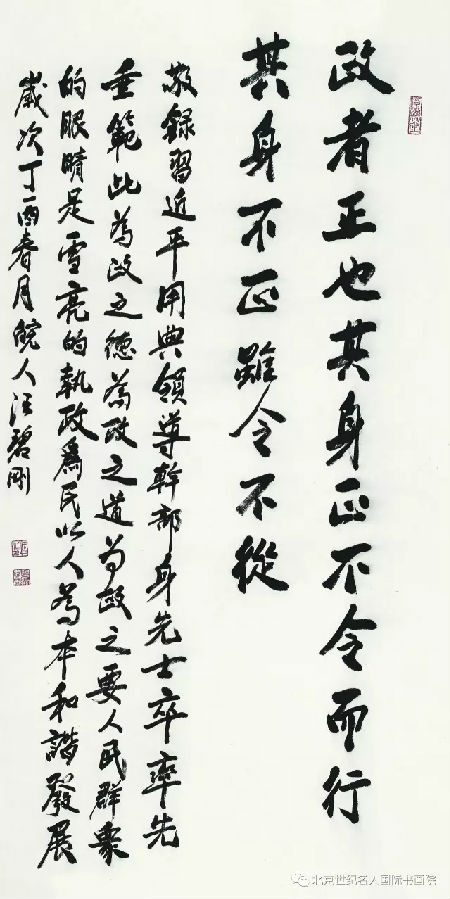 政者正也其身正不令而行
其身不正雖令不從
敬録習近平用典領導幹部身先士卒率先
垂範此為政之德為政之道為政之要人民群衆
的眼睛是雪亮的執政爲民以人為本和諧發展
歲次丁酉春月皖人汪碧剛
北京世纪名人国际书画院